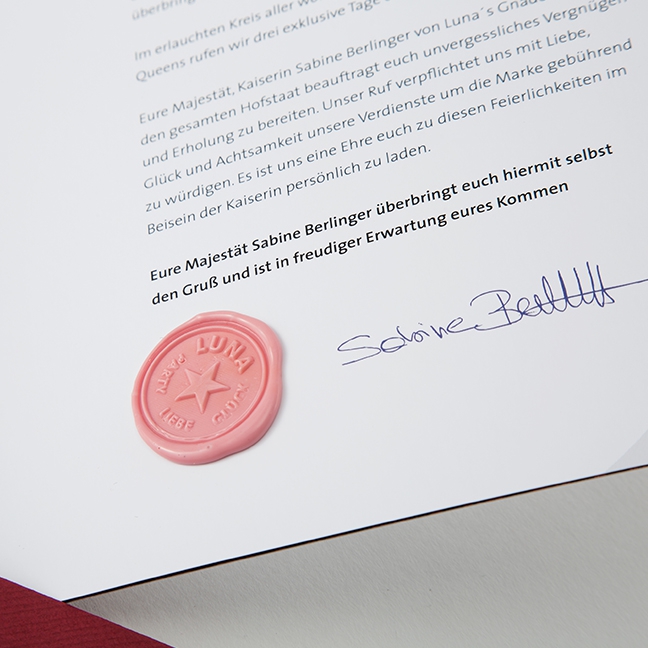 überbring
Im erlauchten Kreis aller we
Queens rufen wir drei exklusive Tage
Eure Majestät, Kaiserin Sabine Berlinger von Luna´s Gnade
den gesamten Hofstaat beauftragt euch unvergessliches Vergnügen
und Erholung zu bereiten. Unser Ruf verpflichtet uns mit Liebe,
Glück und Achtsamkeit unsere Verdienste um die Marke gebührend
zu würdigen. Es ist uns eine Ehre euch zu diesen Feierlichkeiten im
Beisein der Kaiserin persönlich zu laden.
Eure Majestät Sabine Berlinger überbringt euch hiermit selbst
den Gruß und ist in freudiger Erwartung eures Kommen
Sabine
LUNA
PARTY
LIEBE
GLÜCK